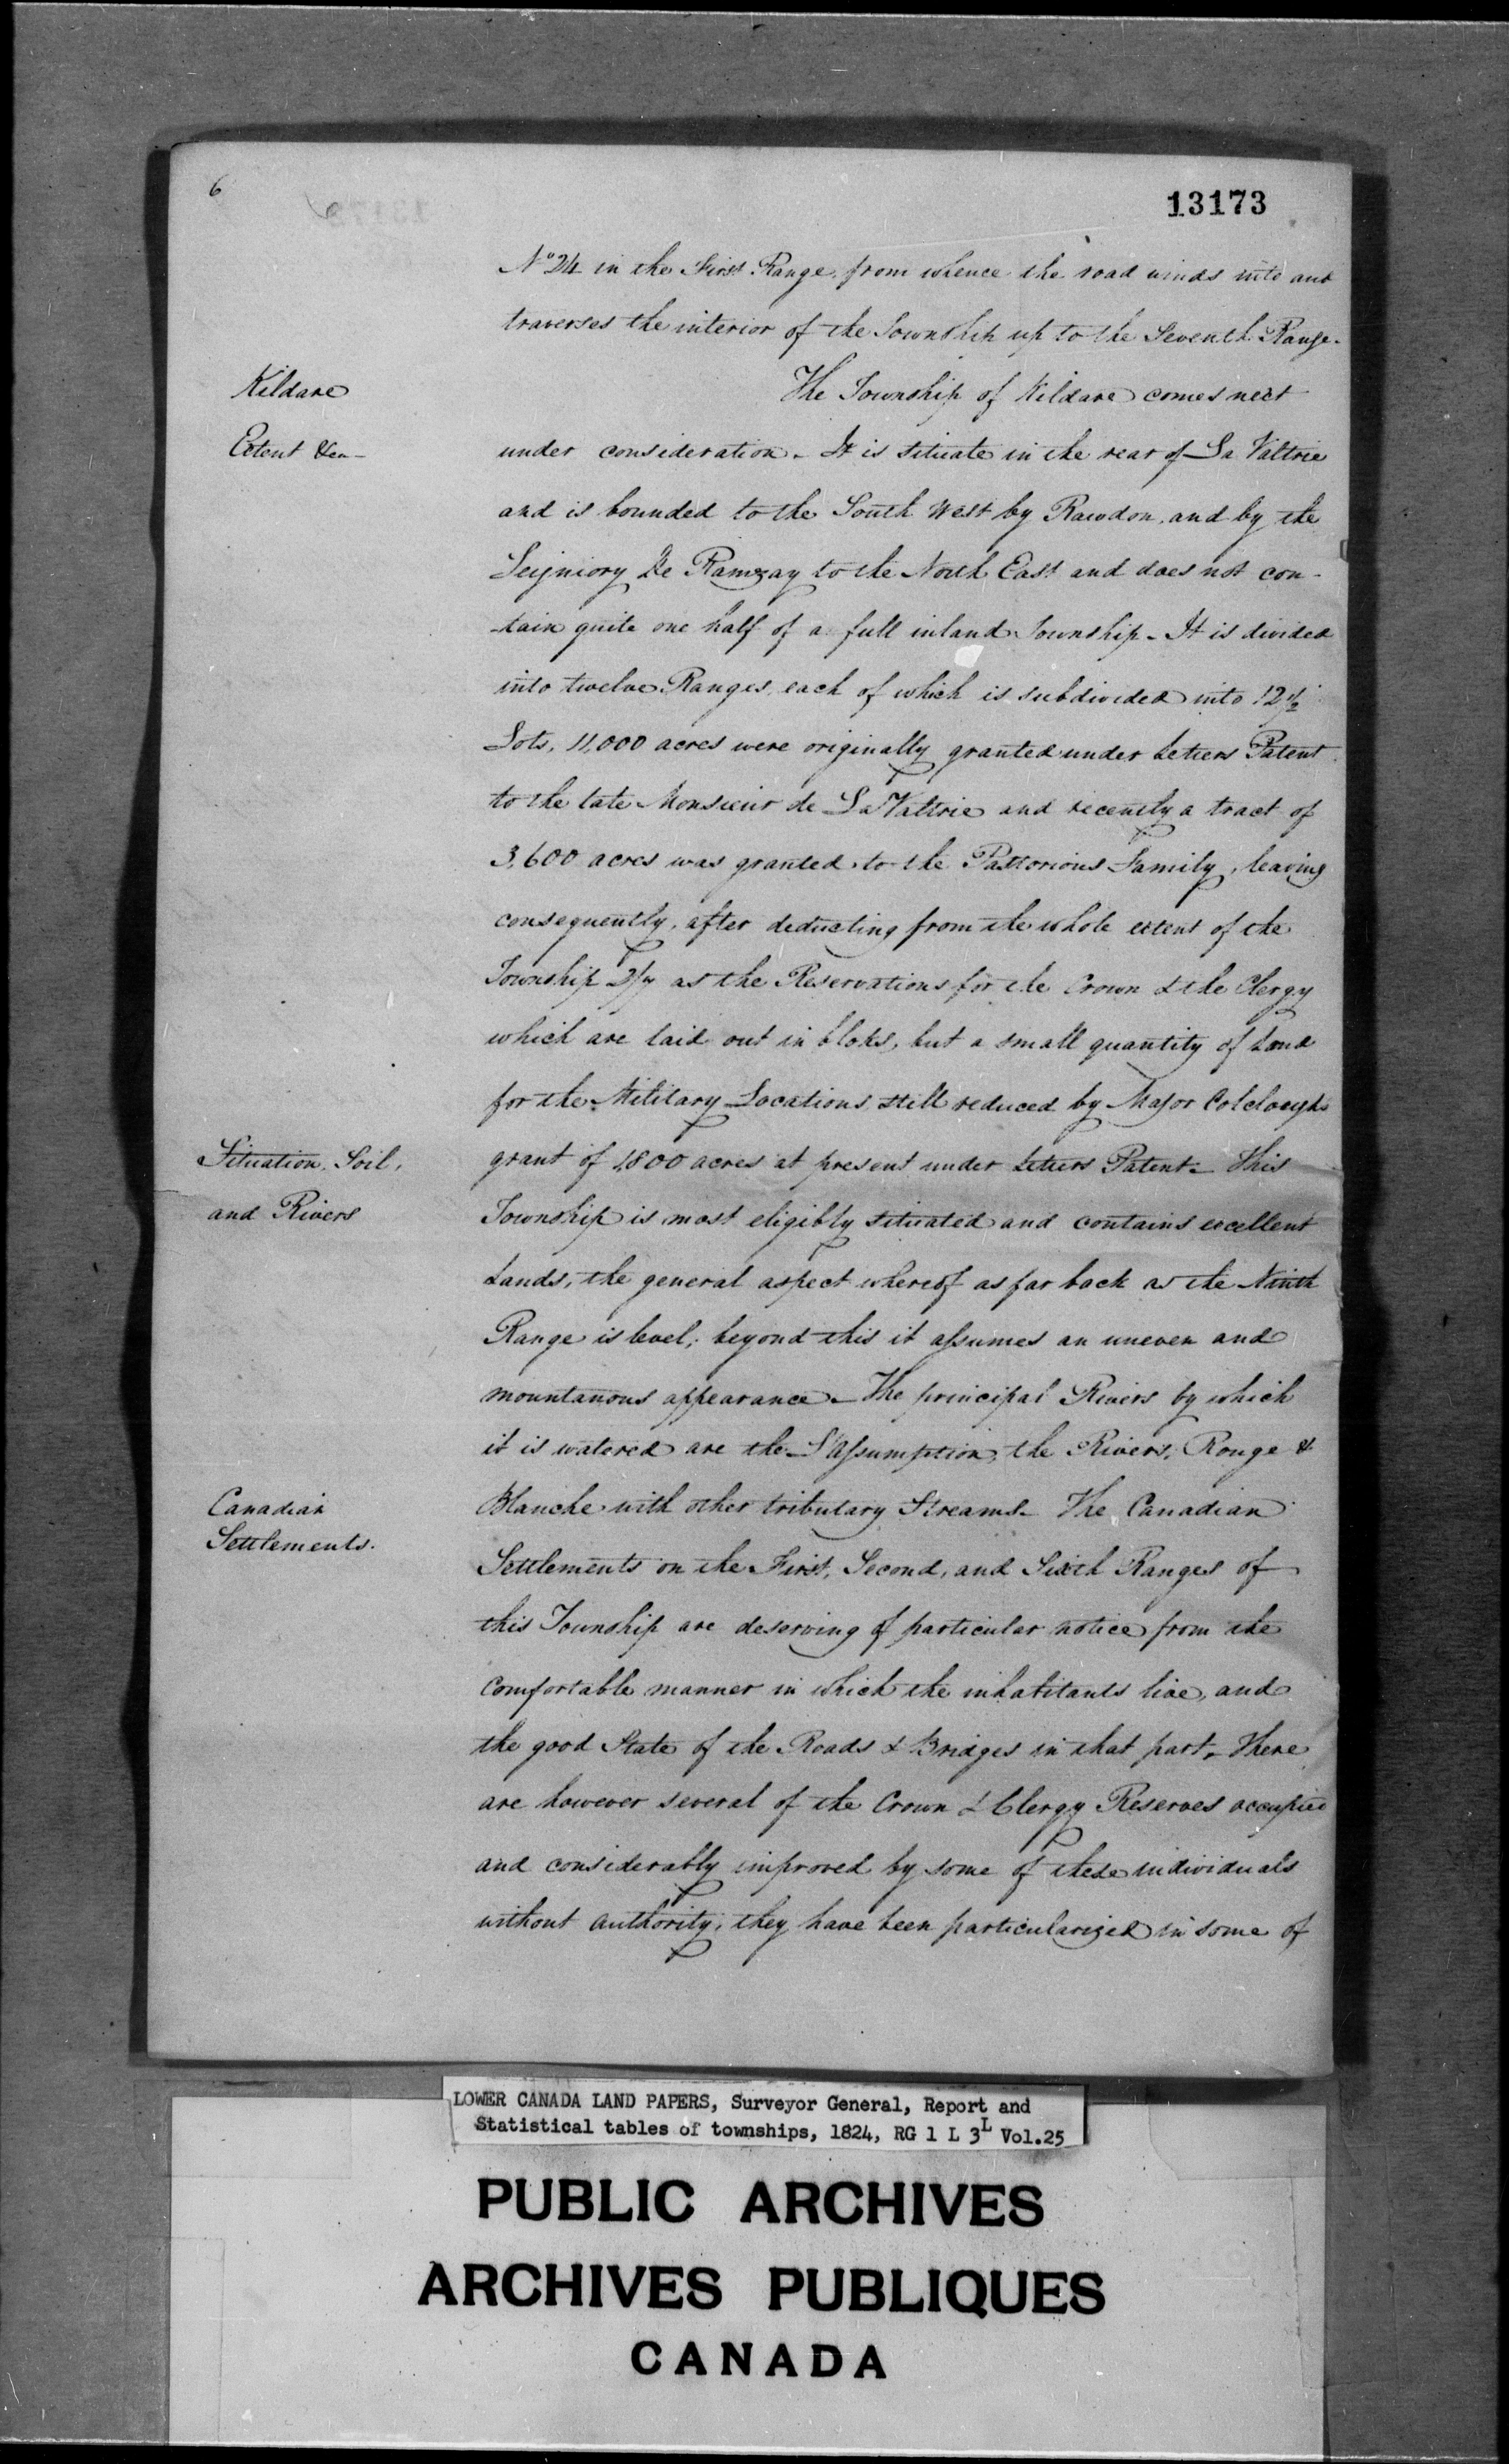 6
13173
No 24 in the First Range, from whence the road winds into and
traverses the interior of the Township up to the Seventh Range.
Kildare
The Township of Kildare comes next
Extent &ca-
under consideration - It is situate in the rear of La Valtrie
and is bounded to the South West by Rawdon, and by the
Seigniory De Ramzay to the North East and does not con-
-tain quite one half of a full inland Township - It is divided
into twelve Ranges, each of which is subdivided into 12 1/2
Lots, 11,000 acres were originally granted under Letters Patent
to the late Monsieur de La Valtrie and recently a tract of
3,600 acres was granted to the Pastorious Family, leaving
consequently, after deducting from the whole extent of the
Township 2/7 as the Reservations for the Crown & the Clergy
which are laid out in bloks, but a small quantity of Land
for the Military Locations, still reduced by Major Colcloughs
Situation, Soil,
grant of 1,800 acres at present under Letters Patent - This
and Rivers
Township is most eligibly situated and contains excellent
Lands, the general aspect whereof as far back as the Ninth
Range is level; beyond this it assumes an uneven and
mountanous appearance - The principal Rivers by which
it is watered are the L'Assumption, the Rivers, Rouge &
Canadian
Blanche with other tributary Streams - The Canadian
Settlements.
Settlements on the First, Second, and Sixth Ranges of
this Township are deserving of particular notice from the
Comfortable manner in which the inhabitants live, and
the good State of the Roads & Bridges in that part, There
are however several of the Crown & Clergy Reserves occupied
and considerably improved by some of these individuals
without authority; they have been particularized in some of
LOWER CANADA LAND PAPERS, Surveyor General, Report and
Statistical tables of townships, 1824, RG 1 L 3L Vol.25
PUBLIC ARCHIVES
ARCHIVES PUBLIQUES
CANADA